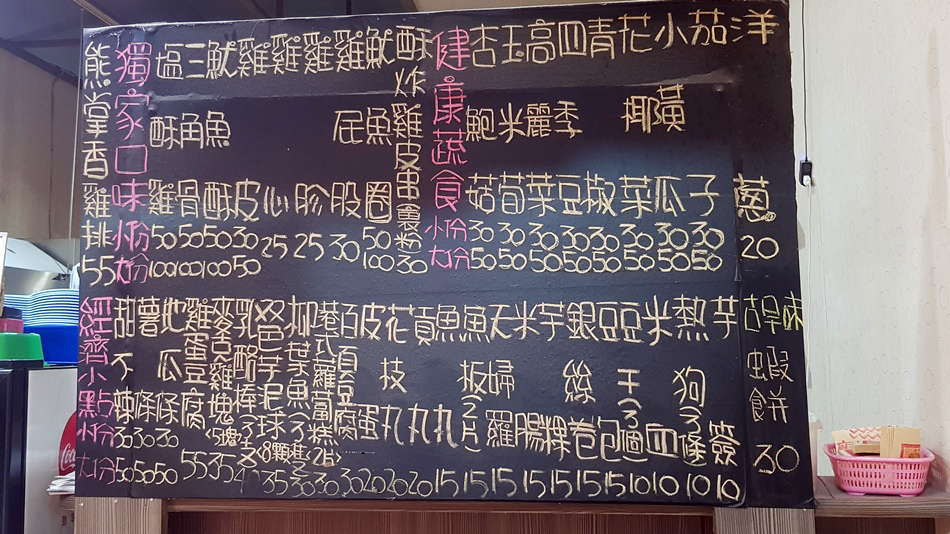 熊掌香雞排 55
獨家口味 小份 大份
塩酥雞 50 100
三角骨 50 100
魷魚酥 50 100
雞皮 30 50
雞心 25
雞胗 25
雞屁股 30
魷魚圈 50 100
酥炸雞皮串裹粉 30
健康蔬食 小份 大份
杏鮑菇 30 50
玉米筍 30 50
高麗菜 30 50
四季豆 30 50
青椒 30 50
花椰菜 30 50
小黃瓜 30 50
茄子 30 50
洋蔥 20
經濟小點 小份 大份
甜不辣 30 50
薯條 30 50
地瓜條 30 50
雞蛋豆腐 55
雞塊 <5塊> 35
乳酪棒
芋泥球 8顆 35
柳葉魚 30
港式蘿蔔糕 2片 30
百頁豆腐 30
皮蛋 20
花枝丸 20
貢丸 20
魚丸 15
魚板2片 15
天婦羅 15
米腸 15
芋粿 15
銀絲卷 15
豆包 15
豆干3個 10
米血 10
熱狗3條 10
芋簽 10
古早味蝦餅 30